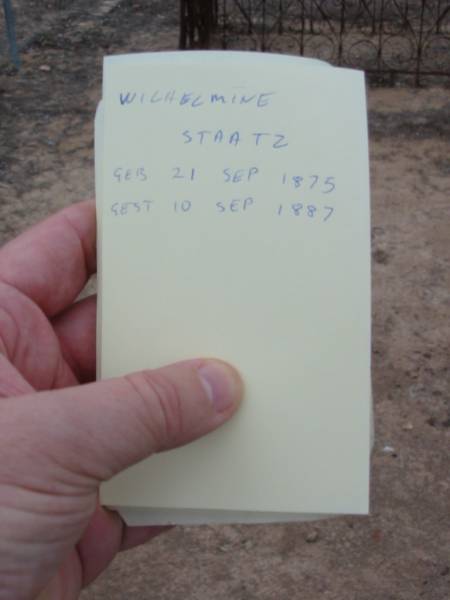 WILHELMINE
STAATZ
GEB 21 SEP 1875
GEST 10 SEP 1887